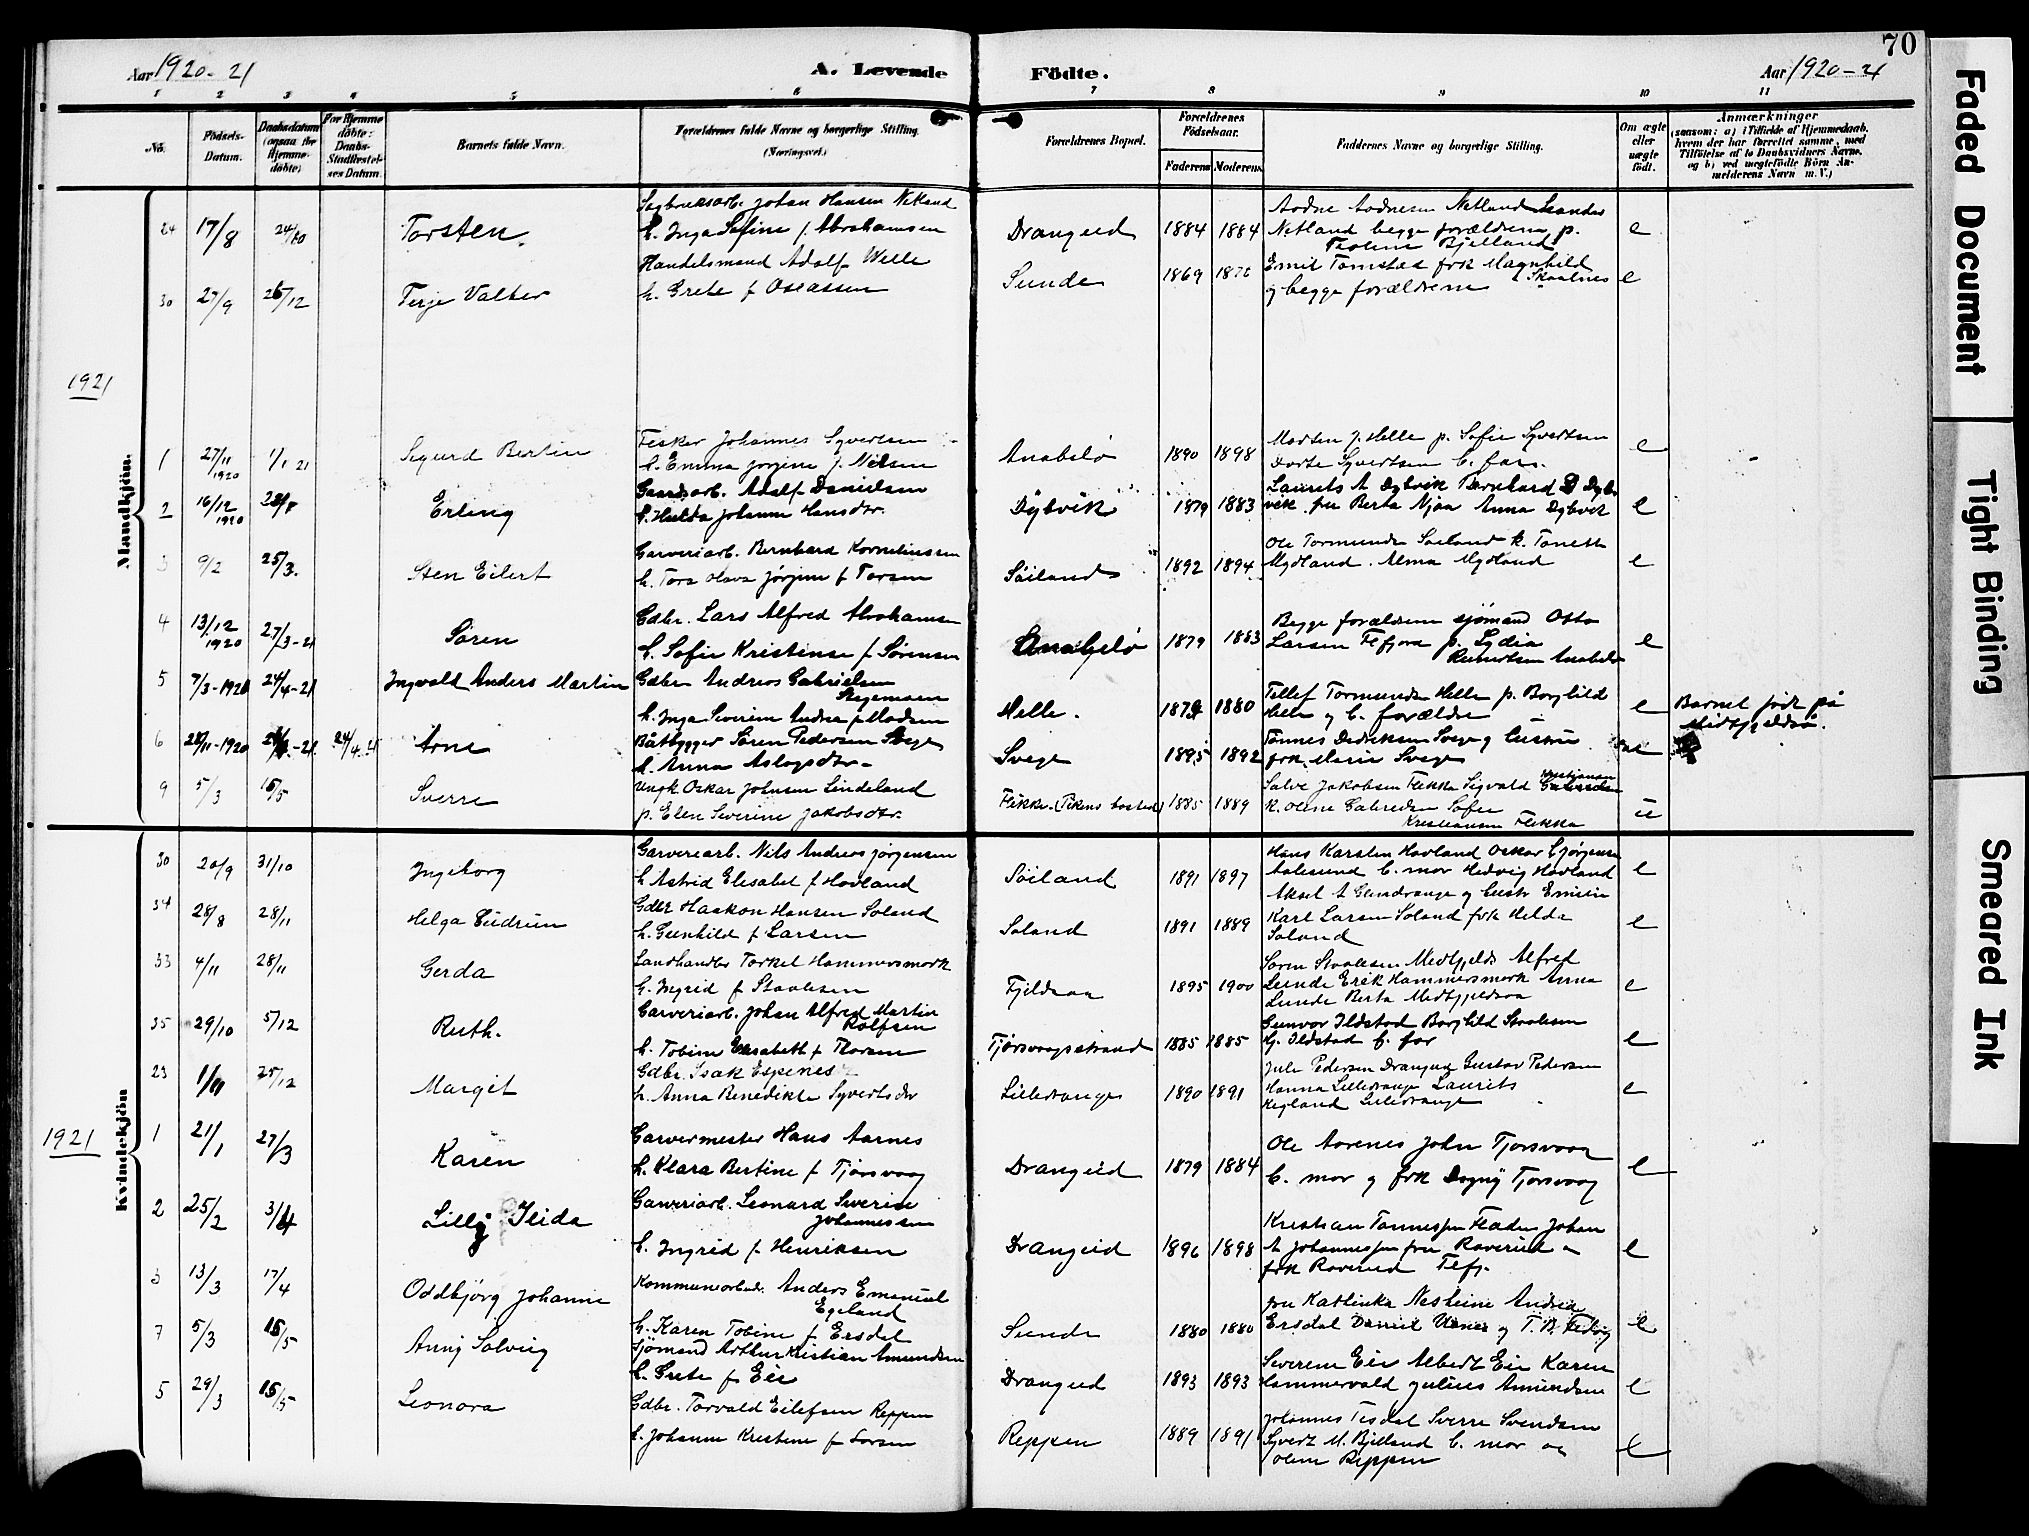 70
Aar 1920-21
A. Levende
Födte.
Aar 1920-21
1 2 3 4 5 6 7 8 9 10 11
No.
Födsels-Datum.
Daabsdatum (ogsaa for Hjemme-döbte)
For Hjemme döbte: Daabs-Stadfæstelses Datum.
Barnets fulde Navn.
Forældrenes fulde Navne og borgerlige Stilling. (Næringsvei.)
Forældrenes Bopæl.
Forældrenes Födselsaar.
Faderens Moderens
Faddernes Navne og borgerlige Stilling.
Om ægte eller uægte födt.
Anmærkninger
(saasom: a) i Tilfælde af Hjemmedaab, hvem der har forrettet samme, med Tilföielse af to Daabsvidners Navne, og b) ved uegtefödte Börn Anmelderens Navn m. V.)
Mandkjön.
24 17/8 Torsten.
Johan Hansen Netland
h. Inga Sefine f. Abrahamsen
Drangeid 1884 1884
Aodne Aodnesen Netland
Netland begge forældrene p.
Bjelland e
30 27/9 26/12 Terje Valter
Handelsmand Adolf Welle
h. Grete f Oseassen
Sunde 1869
Emil Tomstad frk Magnhild
Skaalnes
og begge forældrene e
1921
1 27/11 1920 1/1 21 Sigurd Bertin
Fisker Johannes Syvertsen
h. Emma Jorgine f. Nilsen
Anabelø 1890 1898
Morten J. Helle p. Sofie Syvertsen
Dorte Syvertsen b. far. e
2 16/12 1920 Erling
Gaardsarb. Adolf Danielsen
h. Hulda Johanne Hansdtr.
Dybvik 1879 1883
Laurits A Dybvik Bernhard D Dyb-
vik fru Berta Njaa Anna Dybvik e
3 9/2 25/3. Sten Eilert
Garveriarb. Bernhard Korneliussen
h. Tora Olava Jörgine f Torsen
Söiland 1892 1894
Ole Tormundsen Soiland k. Tonette
Mydland. Alma Mydland e
4 13/12 1920 27/3-21 Sören
Gdbr. Lars Alfred Abrahamsen
h. Sofie Kristense f Sørensen
Anabelö 1879 1883
Begge forældrene sjømand Otto
Larsen Flefjora p. Lydia
Anabelø e
5 7/3-1921 24/4-21 Ingvald Anders Martin
Gdbr Andreas Gabrielsen
Stegemoen
h. Inga Severine Andrea f Madsen
Helle. 1880
Tellef Tormundsen Helle p. Borghild
Helle og b. forældre e
Barnet född på
Midtfjeldså.
6 28/11-1920 24/4-21 Arne
Båtbygger Søren Pedersen Svege
h. Anna Aslagsdtr.
Svege 1895 1892
Tönnes Dedriksen Svege og hustru
frk. Marie Svege
9 5/3 15/5 Sverre
Ungk Oskar Johnsen Lindeland
p. Elen Severine Jakobsdtr.
Flikke. (Pikens bosted) 1885 1889
Salve Jakobsen Flikke Sigvald Kristiansen
k. Oline Gabrielsen Sofie
Kristiansen Flikka u
Kvindekjön
30 20/9 31/10 Ingeborg
Garveriarb. Nils Andreas Jørgensen
h Astrid Elisabet f Hovland
Söiland 1891 1897
Hans Karsten Hovland Oskar Cjørgensen
Aalesund b. mor Hedvig Hovland e
34 28/8 28/11 Helga Gudrun
Gdbr Haakon Hansen Soland
h. Gunhild f Larsen
Soland 1891 1889
Aksel A Gundrange og hustr Emilie
Karl Larsen Soland frk Hilda
Soland e
33 4/11 28/11 Gerda
Landhandler Torkel Hammersmork
h. Ingrid f Staalesen
Fjeldsaa 1895 1900
Soren Staalesen Medfjelds Alfred
Lunde Erik Hammersmork Anna
Lunde Berta Midtfjeldsaa e
35 29/10 5/12 Ruth.
Garveriarb. Johan Alfred Martin
Rolfsen
h. Tobine Elisabeth f Thorsen
Tjørsvaagstrand 1885 1885
Gunvor Ildstad Borghild Staalesen
b. far e
23 25/12 Margit
Gdbr. Isak Espenes
h. Anna Benedikte Syvertsdtr
Lilledrange 1890 1891
Jule Pedersen Drangeid Gustav Pedersen
Hanna Lilledrange Laurits
Regland Lilledrange e
1921
1 21/1 27/3 Karen
Garvermester Hans Aarnes
h. Klara Bertine f Tjørsvaag
Drangeid 1879 1884
Ole Aarenes John Tjorsvaag
b. mor og frk Dagny Tjorsvaag e
2 25/2 3/4 Lilly Ilida
Garveriarb. Leonard Severin
Johannessen
h. Ingrid f Henriksen
Drangeid 1896 1898
Kristian Tønnessen Fladen Johan
A Johannessen fru Raveneid
frk Raveneid Flefj. e
3 13/3 17/4 Oddbjörg Johanne
Kommunearbeid. Anders Emanuel
Egeland
h. Karen Tobine f Ersdal
Sunde 1880 1880
fru Kathinka Nesheim Andrea
Ersdal Daniel e
7 5/3 15/5 Anny Solveig
Sjømand Arthur Kristian Amundsen
h. Grete f Eie
Drangeid 1893 1893
Severine Eie Albert Eie Karen
Hammervold Julius Amundsen e
5 29/3 15/5 Leonora
Gdbr. Torvald Eilefsen Reppen
h. Johanne Kristine f Larsen
Reppen 1889 1891
Johannes Tisdal Sverre Svendsen
Syvert M. Bjelland b. mor og
Oline Reppen e
Faded Document
Tight Binding
Smeared Ink